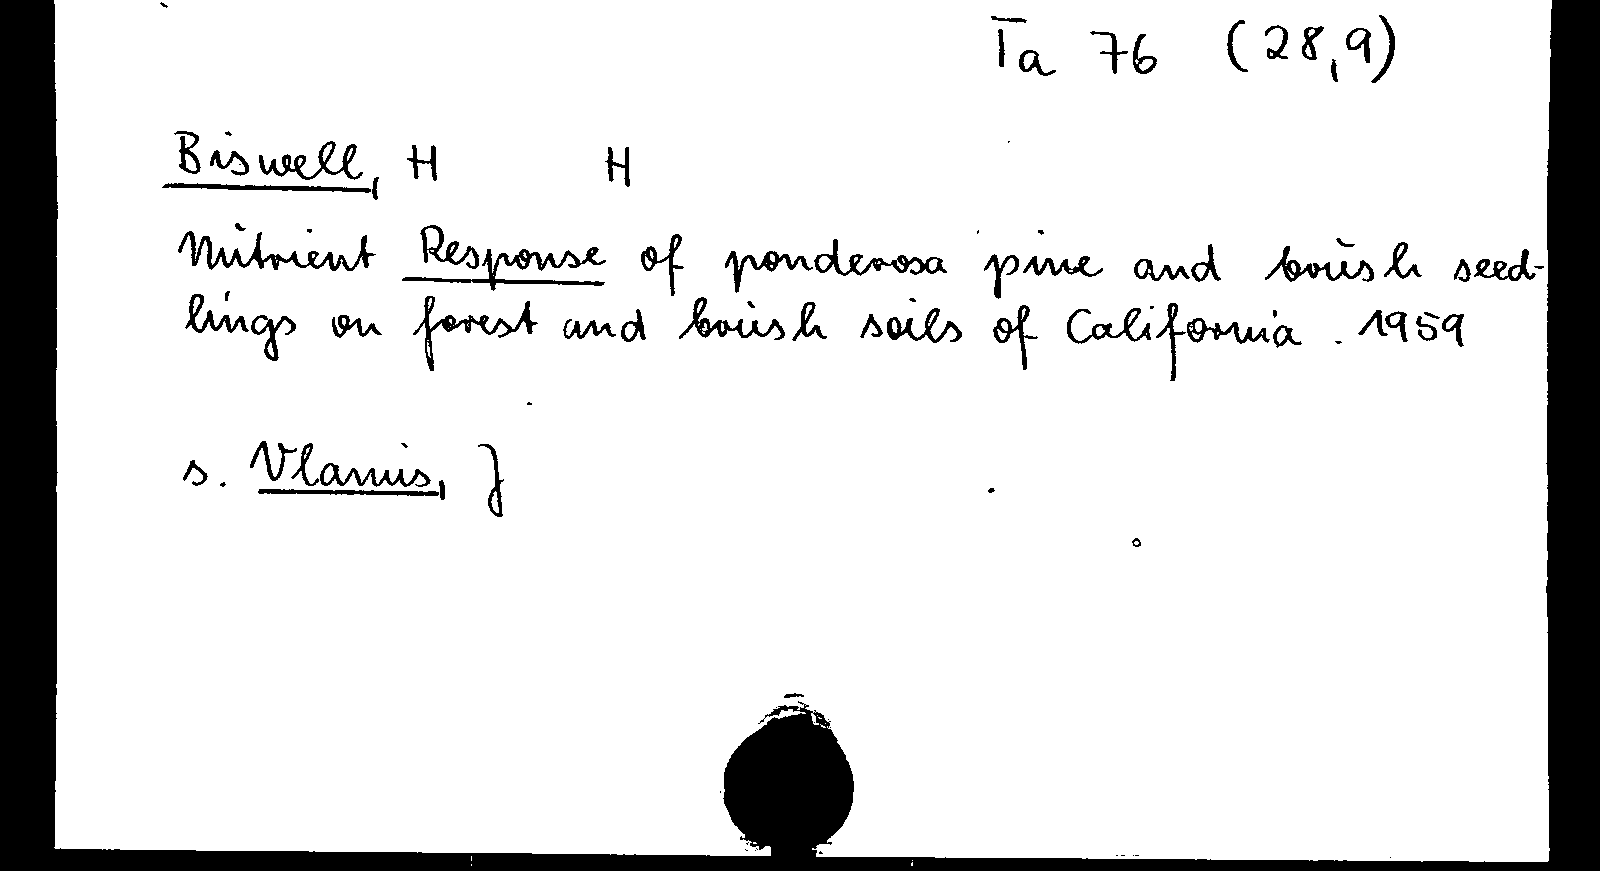 Ta 76 (28,9)
Biswell, H H
Nutrient Response of ponderosa pine and brush seed-
lings on forest and brush soils of California. 1959
s. Vlamis, J